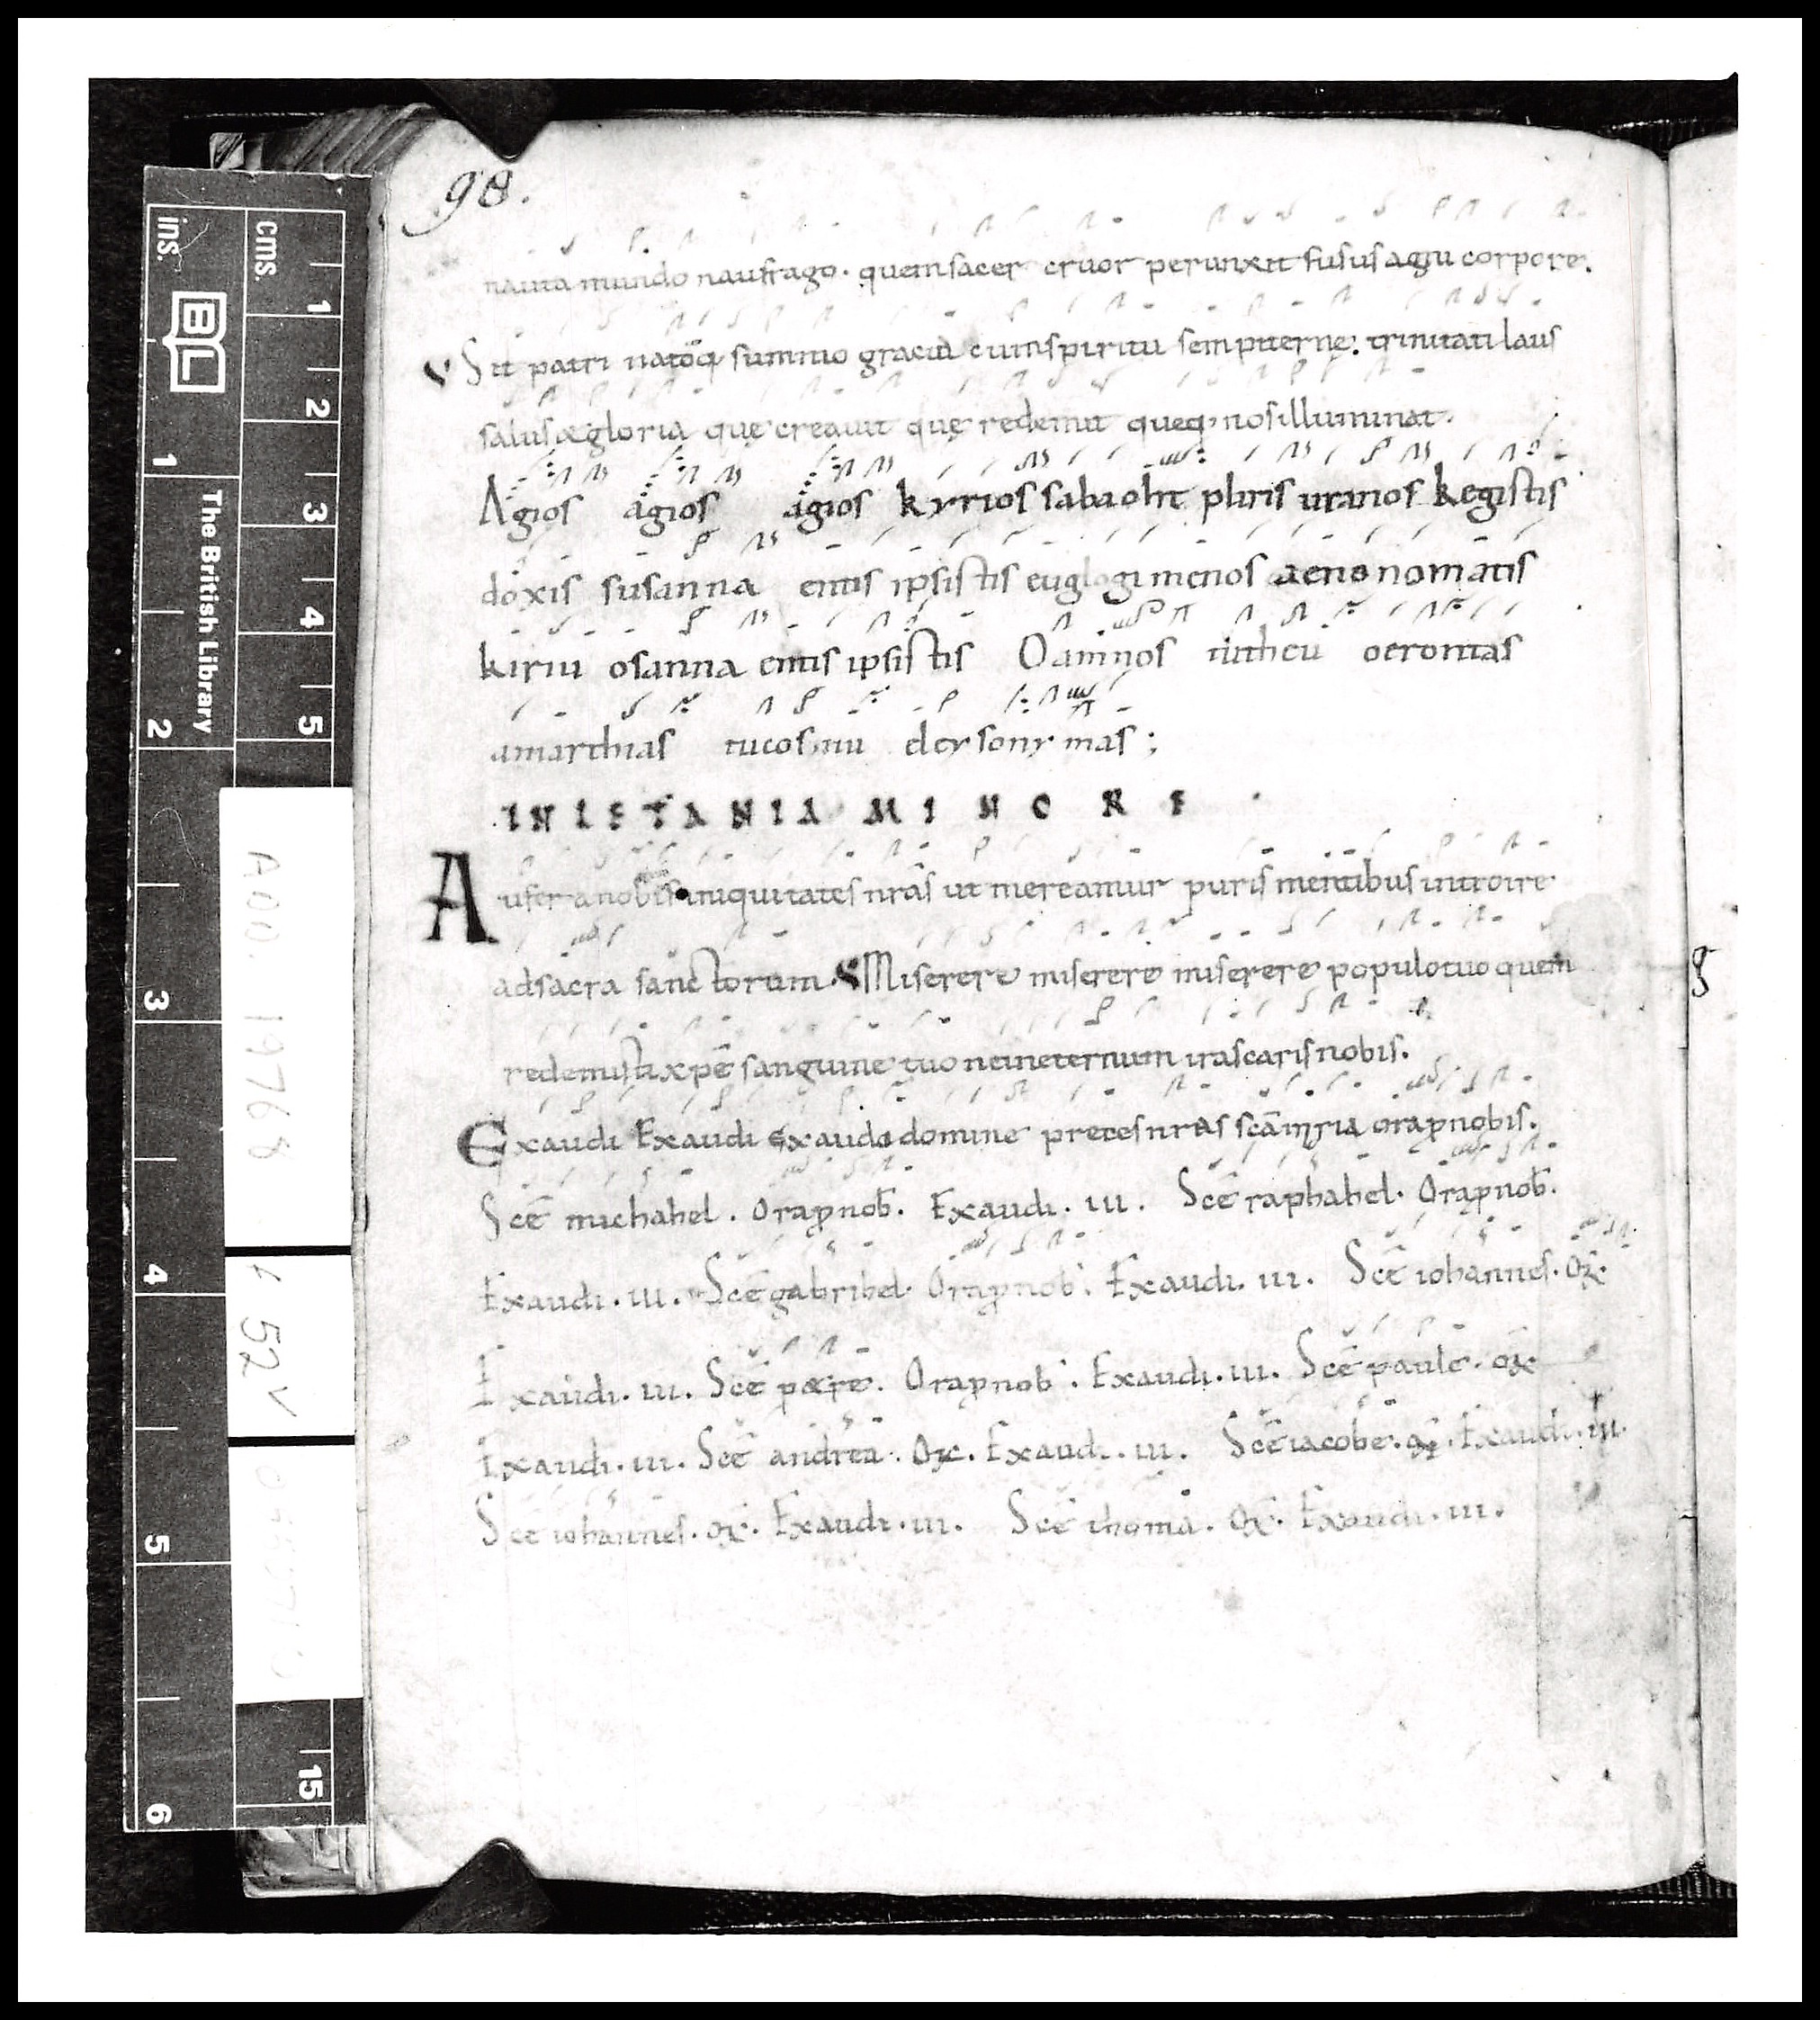 98.
nauta mundo naufrago. quem sacer cruor perunxit fusus agni corpore.
Sit patri natoq; summo gracia cum spiritu sempiterne. trinitati laus
salus & gloria que creauit que redemit queq; nos illuminat.
Agios agios agios kyrios sabaoht pliris uranos kegistis
doxis susanna entis ipsistis euglogimenos aenonomatis
kiriu osanna entis ipsistis O amnos tutheu oerontas
amarthias tucosmu eleysonymas;
IN LETANIA MINORE.
Aufer a nobis iniquitates nr̄as ut mereamur puris mentibus introire
ad sacra sanctorum. Miserere miserere miserere populo tuo quem
redemisti xp̄e sanguine tuo ne ineternum irascaris nobis.
Exaudi Exaudi exaudi domine preces nras scā maria ora p nobis.
Scē michahel. Ora p nob̄. Exaudi. III. Scē raphahel. Ora p nob̄.
Exaudi. III. Scē gabrihel. Ora p nob̄. Exaudi. III. Scē iohannes. or̄.
Exaudi. III. Scē p&re. Ora p nob̄. Exaudi. III. Scē paule. or̄
Exaudi. III. Scē andrea. or̄. Exaudi. III. Scē iacobe. or̄. Exaudi. III.
Scē iohannes. or̄. Exaudi. III. Scē thoma. or̄. Exaudi. III.
ins.
cms.
BL
The British Library
1 2 3 4 5 15
1 2 3 4 5 6
ADD. 19768
f 52v